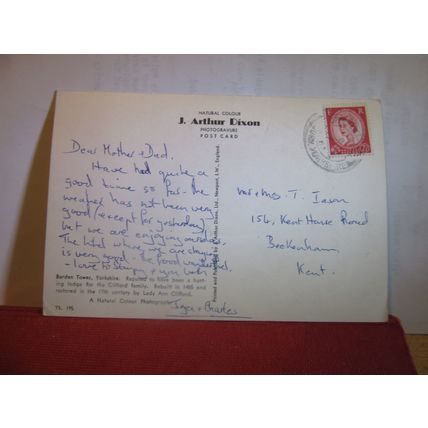 NATURAL COLOUR
J. Arthur Dixon
PHOTOGRAVURE
POST CARD
Dear Mother & Dad,
Have had quite a
good time so far - the
weather has not been very
good (except for yesterday)
but we are enjoying ourselves.
The hotel where we are staying
is very good - the food wonderful,
- love to
you both
Mr & Mrs. T. Iason
154, Kent House Road
Beckenham,
Kent.
Printed and Published by J. Arthur Dixon, Ltd., Newport, I.W., England.
Barden Tower, Yorkshire. Reputed to have been a hunt-
ing lodge for the Clifford family. Rebuilt in 1485 and
restored in the 17th century by Lady Ann Clifford.
A Natural Colour Photograph
& Charles